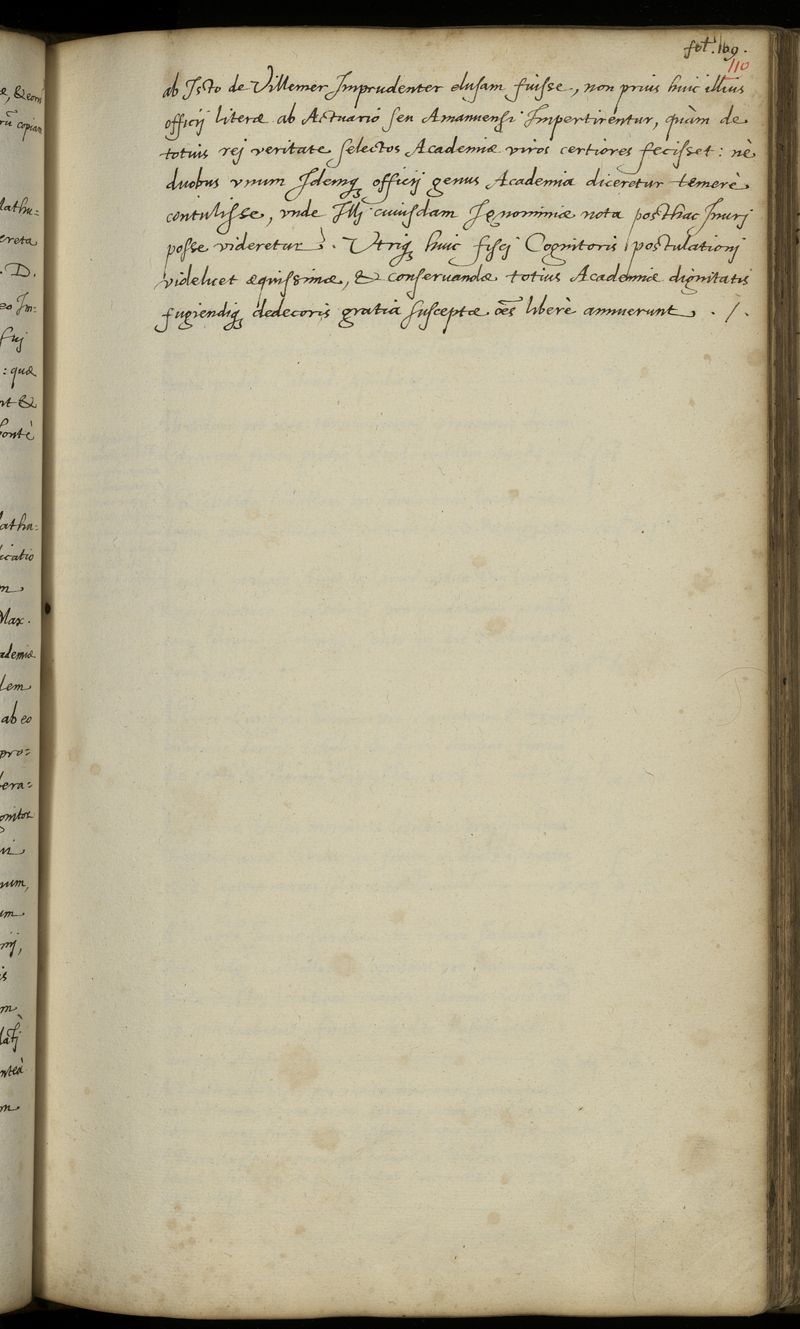 fol. 169.
110
ab Isto de Villemer Imprudenter elusam fuisse, non prius huic illius
officij literæ ab Actuario seu Amanuensi Impertirentur, quàm de
totius rej veritate selectos Academiæ viros certiores fecisset: nè
duobus vnum Idemq officij genus Academia diceretur temerè
contulisse, vnde Illj cuiusdam Ignominiæ nota posthac Inurj
posse videretur. Utriq huic fiscj Cognitoris postulationj
videlicet æquissimæ, & conseruandæ totius Academiæ dignitatis
fugiendiq dedecoris gratia susceptæ oēs liberè annuerunt . / .